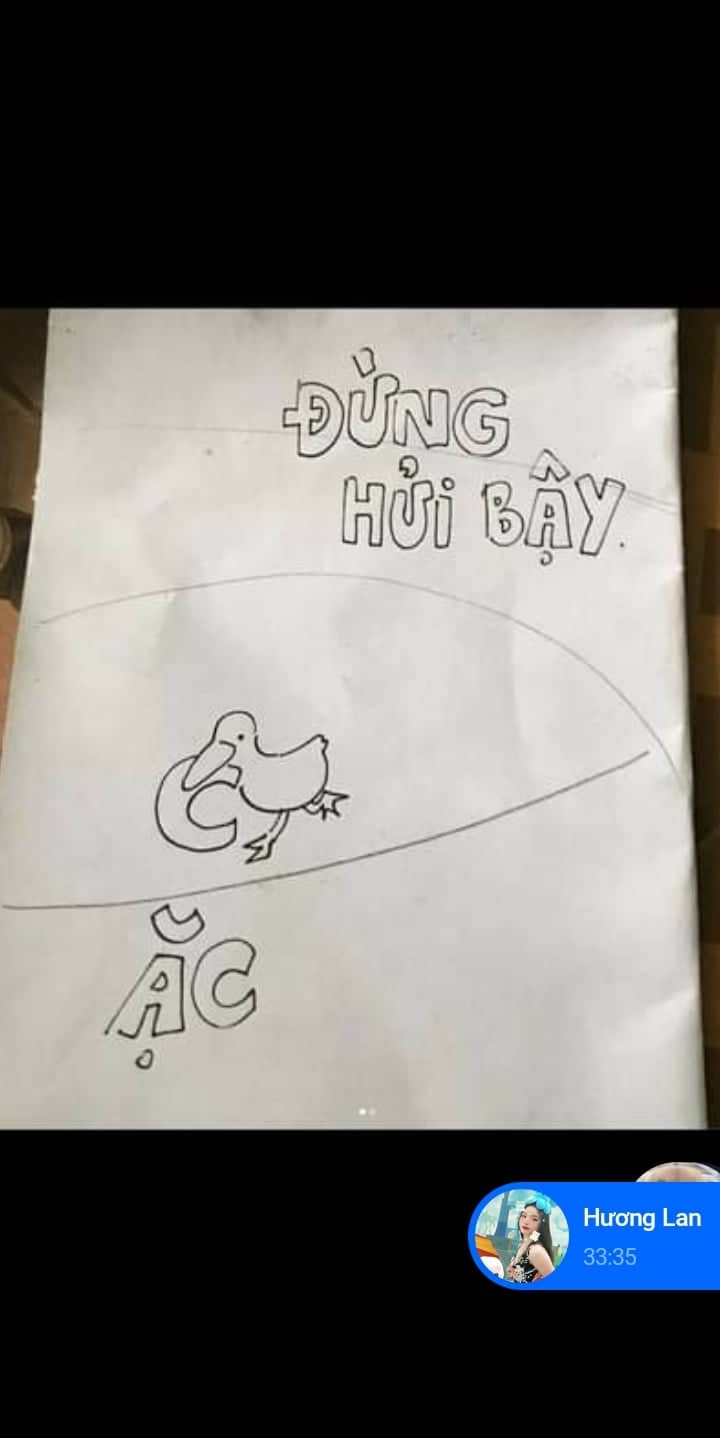 ĐỪNG
HỬI BẬY.
C
ẶC
Hương Lan
33:35